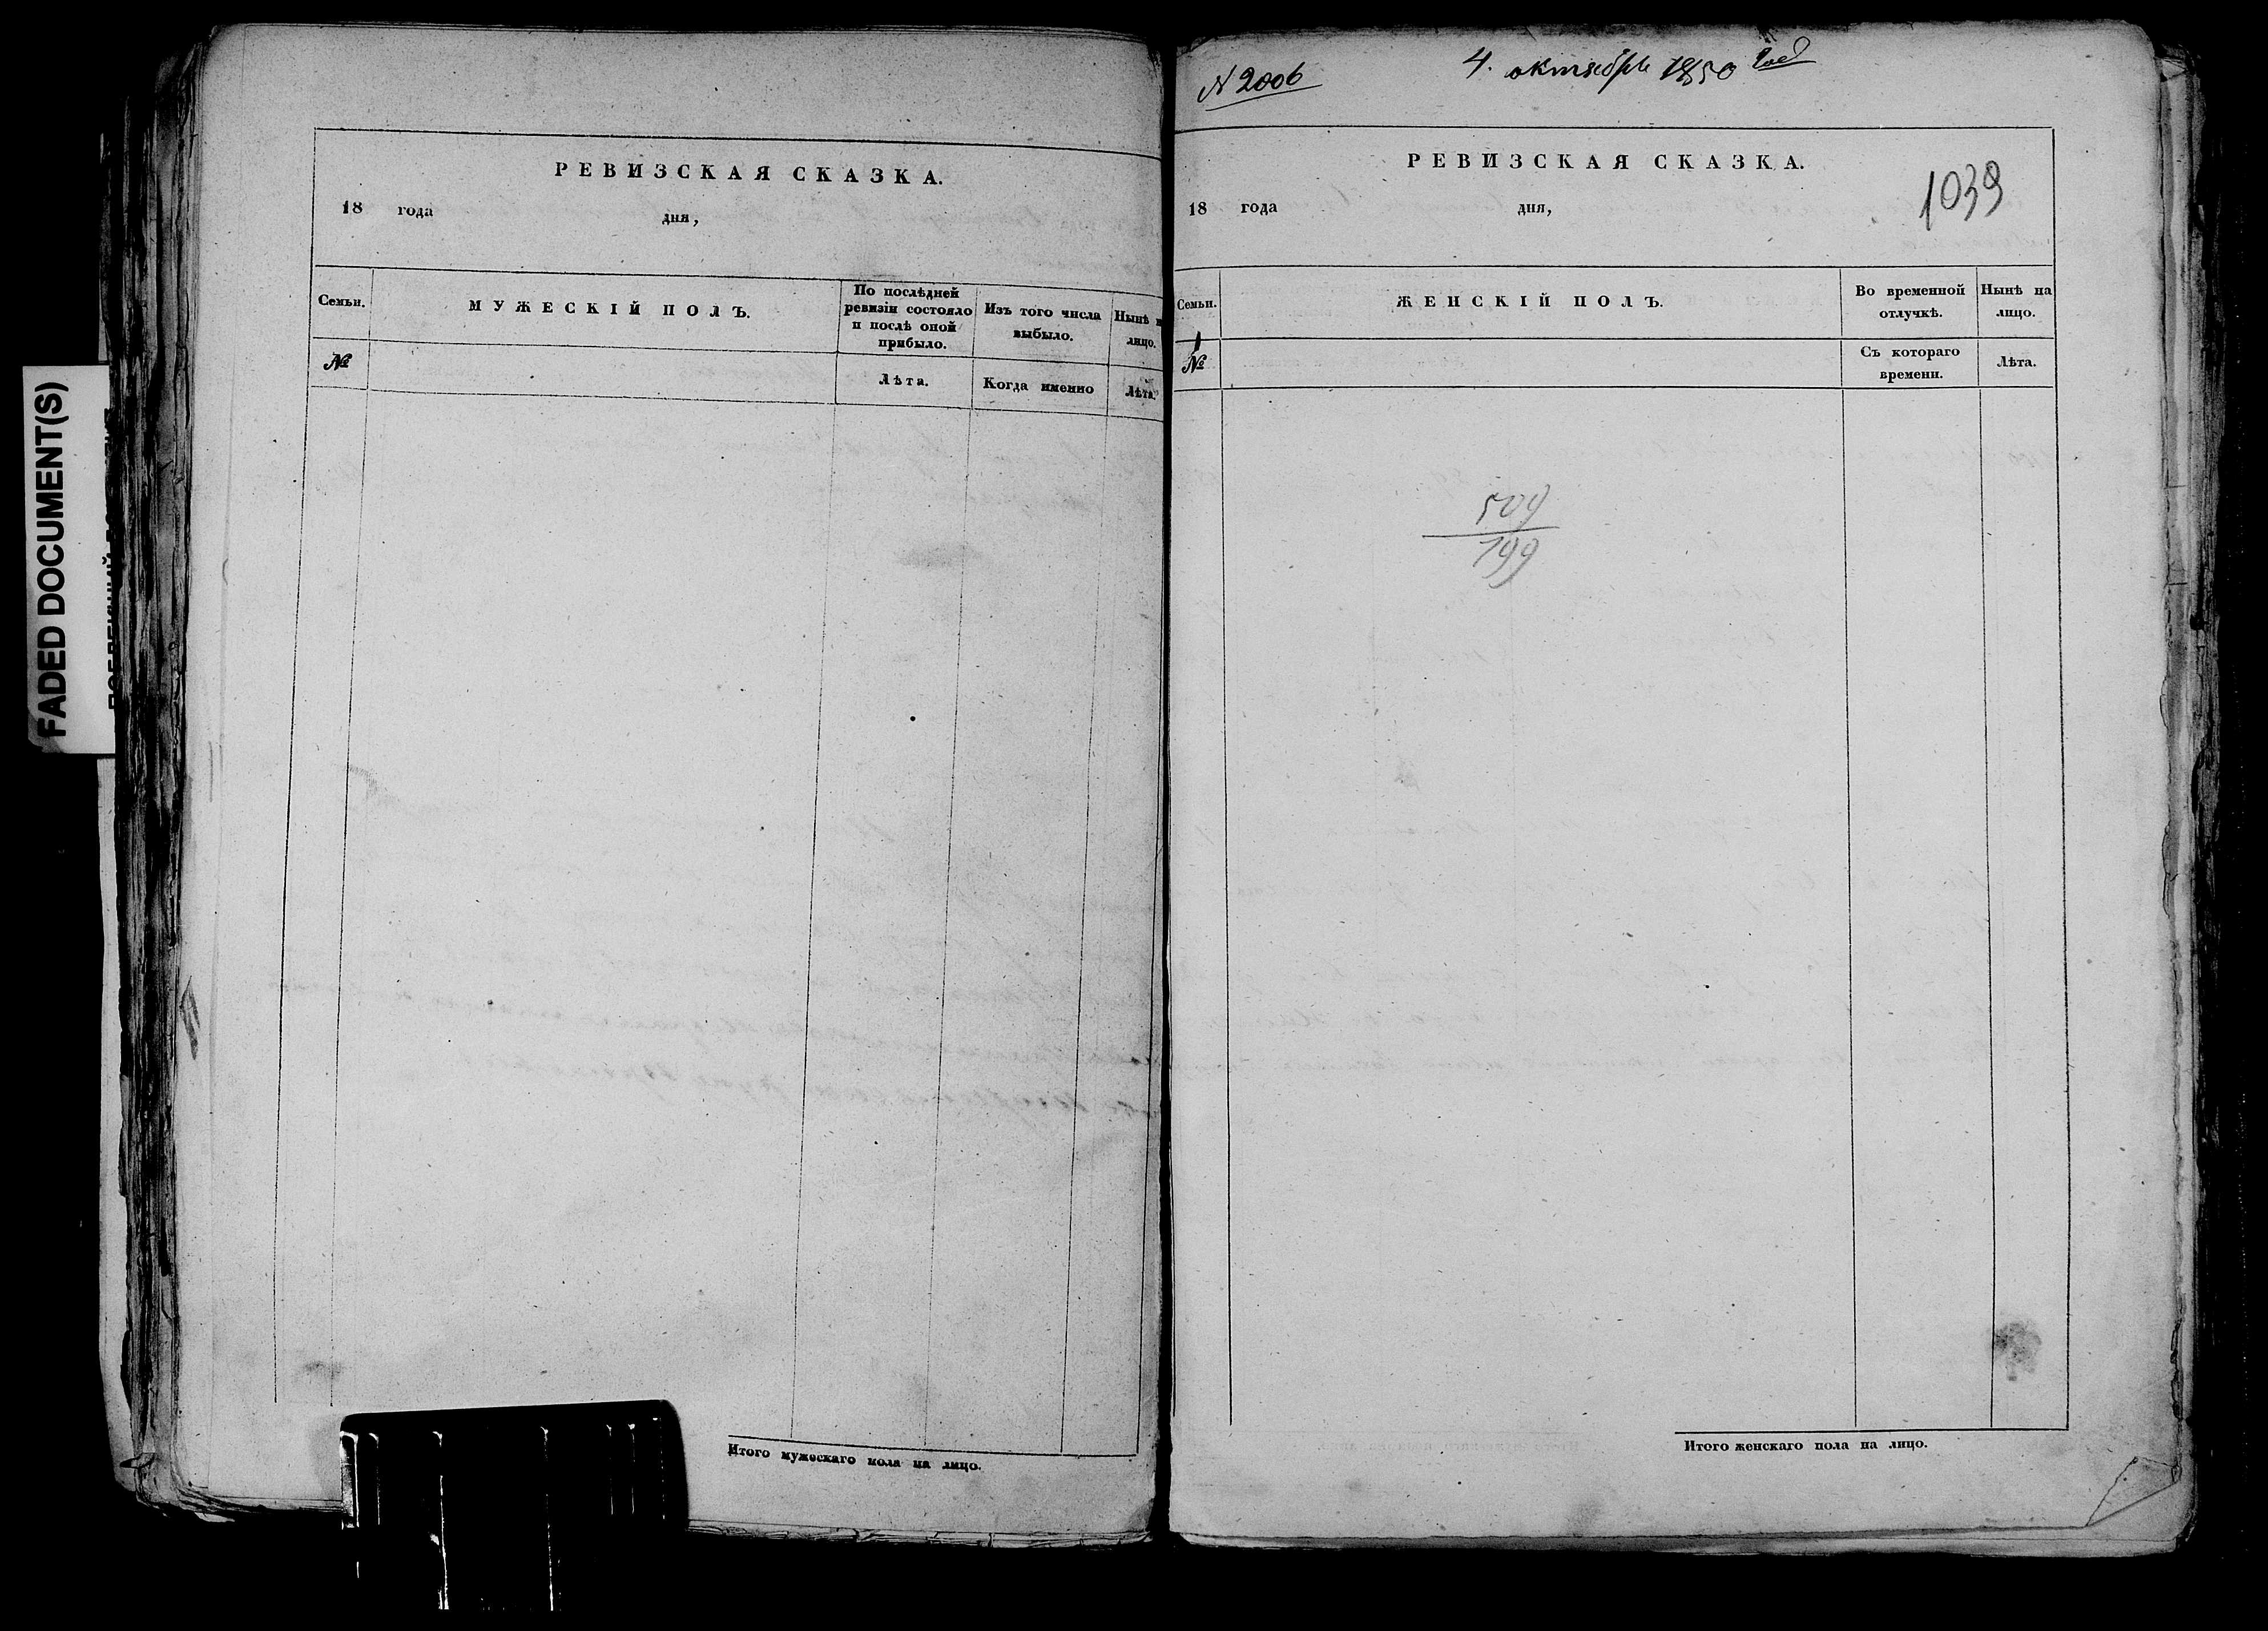 FADED DOCUMENT(S)
РЕВИЗСКАЯ СКАЗКА.
18 года дня,
Семьи.
МУЖЕСКІЙ ПОЛЪ.
По послѣдней
ревизіи состояло
и послѣ оной
прибыло.
Изъ того числа
выбыло.
Нынѣ
лицо.
№
Лѣта.
Когда именно
Лѣта.
Итого мужескаго пола на лицо.
N 2006
4. октября 1850
РЕВИЗСКАЯ СКАЗКА.
1039
18 года дня,
Семьи.
ЖЕНСКІЙ ПОЛЪ.
Во временной
отлучкѣ.
Нынѣ на
лицо.
№
Съ котораго
времени.
Лѣта.
509
199
Итого женскаго пола на лицо.